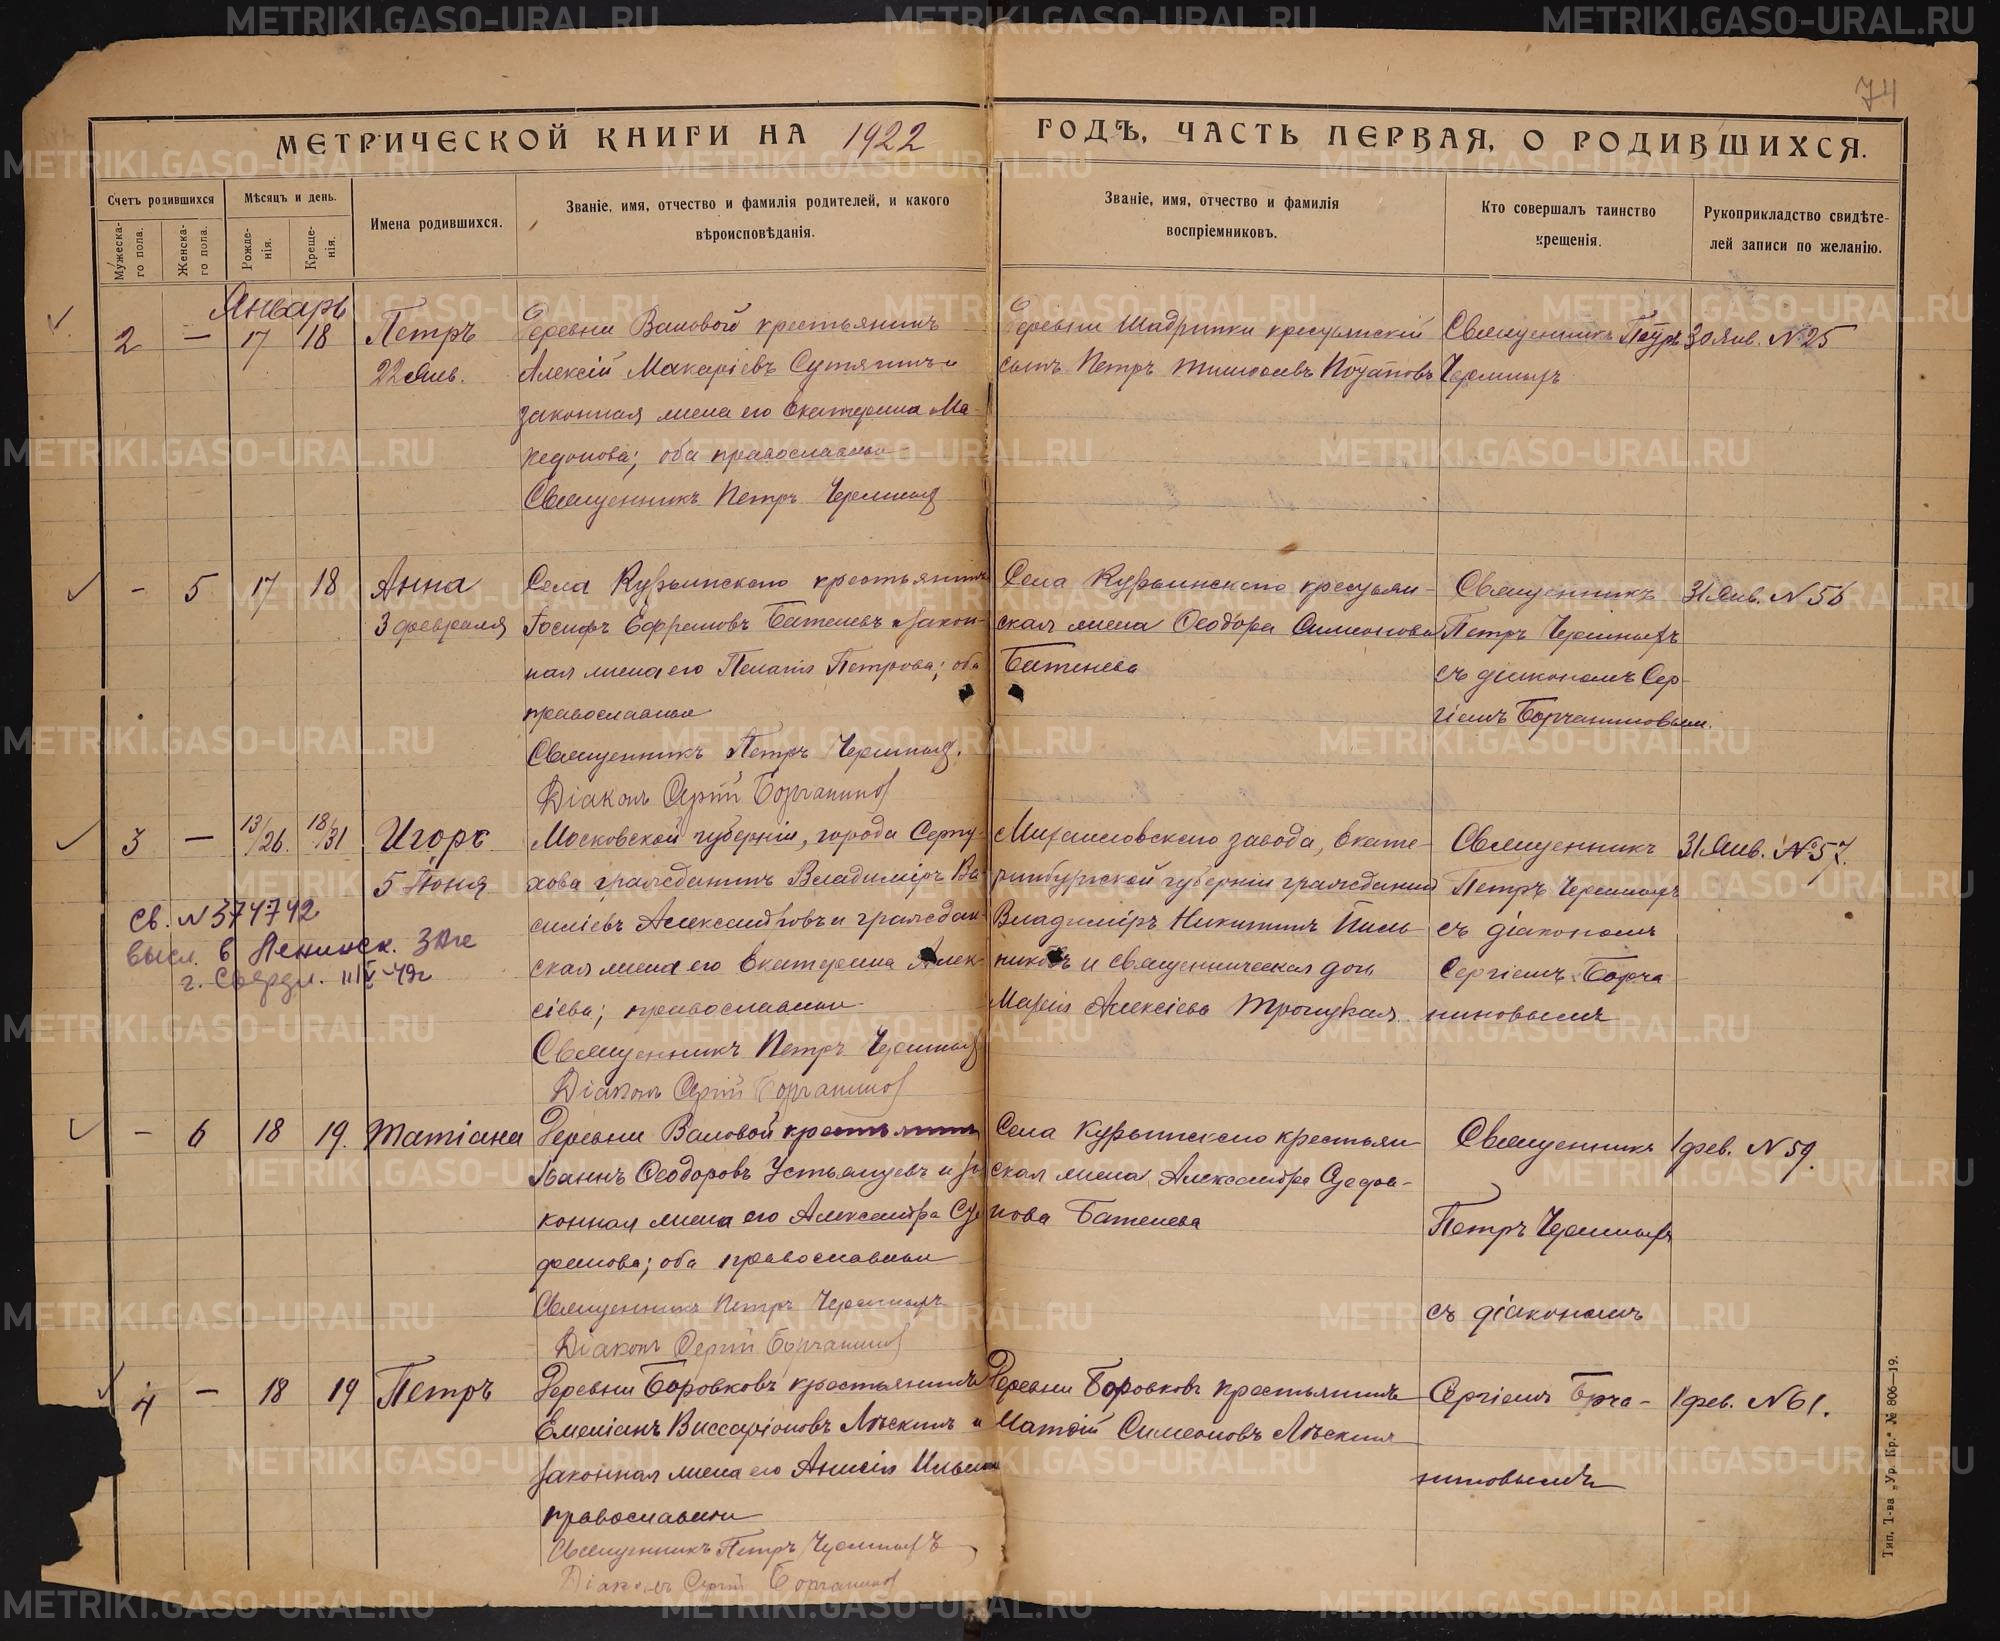 74
МЕТРИЧЕСКОЙ КНИГИ НА 1922 ГОДЪ, ЧАСТЬ ПЕРВАЯ, О РОДИВШИХСЯ.
Счетъ родившихся
Мужеска-
го пола.
Женска-
го пола.
Мѣсяцъ и день.
Рожде-
нія.
Креще-
нія.
Имена родившихся.
Званіе, имя, отчество и фамилія родителей, и какого
вѣроисповѣданія.
Званіе, имя, отчество и фамилія
воспріемниковъ.
Кто совершалъ таинство
крещенія.
Рукоприкладство свидѣте-
лей записи по желанію.
Январь
2 — 17 18
Петръ
22 Янв.
Деревни Валовой крестьянинъ
Алексій Макаріевъ Сутягинъ и
законная жена его Екатерина Ма-
кедонова; оба православные
Священникъ Петръ
Деревни Шадринки крестьянскій
сынъ Петръ Тимоѳеевъ Потаповъ
Священникъ Петръ
30 Янв. №25
- 5 17 18
Анна
3 февраля
Села Курьинскаго крестьянинъ
Іосифъ Ефремовъ Батеневъ и закон-
ная жена его Пелагія Петрова; оба
православные
Священникъ Петръ
Діаконъ Сергій
Села Курьинскаго крестьян-
ская жена Ѳеодора Симеонова
Батенева
Священникъ
Петръ
съ діакономъ Сер-
гіемъ
31 Янв. №56
3 — 13/26. 18/31
Игорь
5 Іюня
Св. №374742
высл. в Ленинск. Заге
г. Свердл.
Московской губерніи, города Серпу-
хова гражданинъ Владиміръ Ва-
силіевъ Александровъ и граждан-
ская жена его Екатерина Алек-
сіева; православные
Священникъ Петръ
Діаконъ Сергій
Михайловскаго завода, Екате-
ринбургской губерніи гражданинъ
Владиміръ Никитинъ Пиль-
никовъ и священническая дочь
Марія Алексіева Троицкая.
Священникъ
Петръ
съ діакономъ
Сергіемъ
ниновымъ
31 Янв. №57.
- 6 18 19.
Татіана
Деревни Валовой крестьянинъ
Іоаннъ Ѳеодоровъ Устьянцевъ и за-
конная жена его Александра
оба православные
Священникъ Петръ
Діаконъ Сергій
Села Курьинскаго крестьян-
ская жена Александра
нова Батенева
Священникъ
Петръ
съ діакономъ
1 фев. №59.
4 — 18 19
Петръ
Деревни Боровковъ крестьянинъ
Емеліанъ Виссаріоновъ Лѣскинъ и
законная жена его Анисія
православные
Священникъ Петръ
Діаконъ Сергій
Деревни Боровковъ крестьянинъ
Матѳій Симеоновъ Лѣскинъ
Сергіемъ
ниновымъ
1 фев. №61.
Тип. Т-ва „Ур. Кр.“ № 806—19.
METRIKI.GASO-URAL.RU